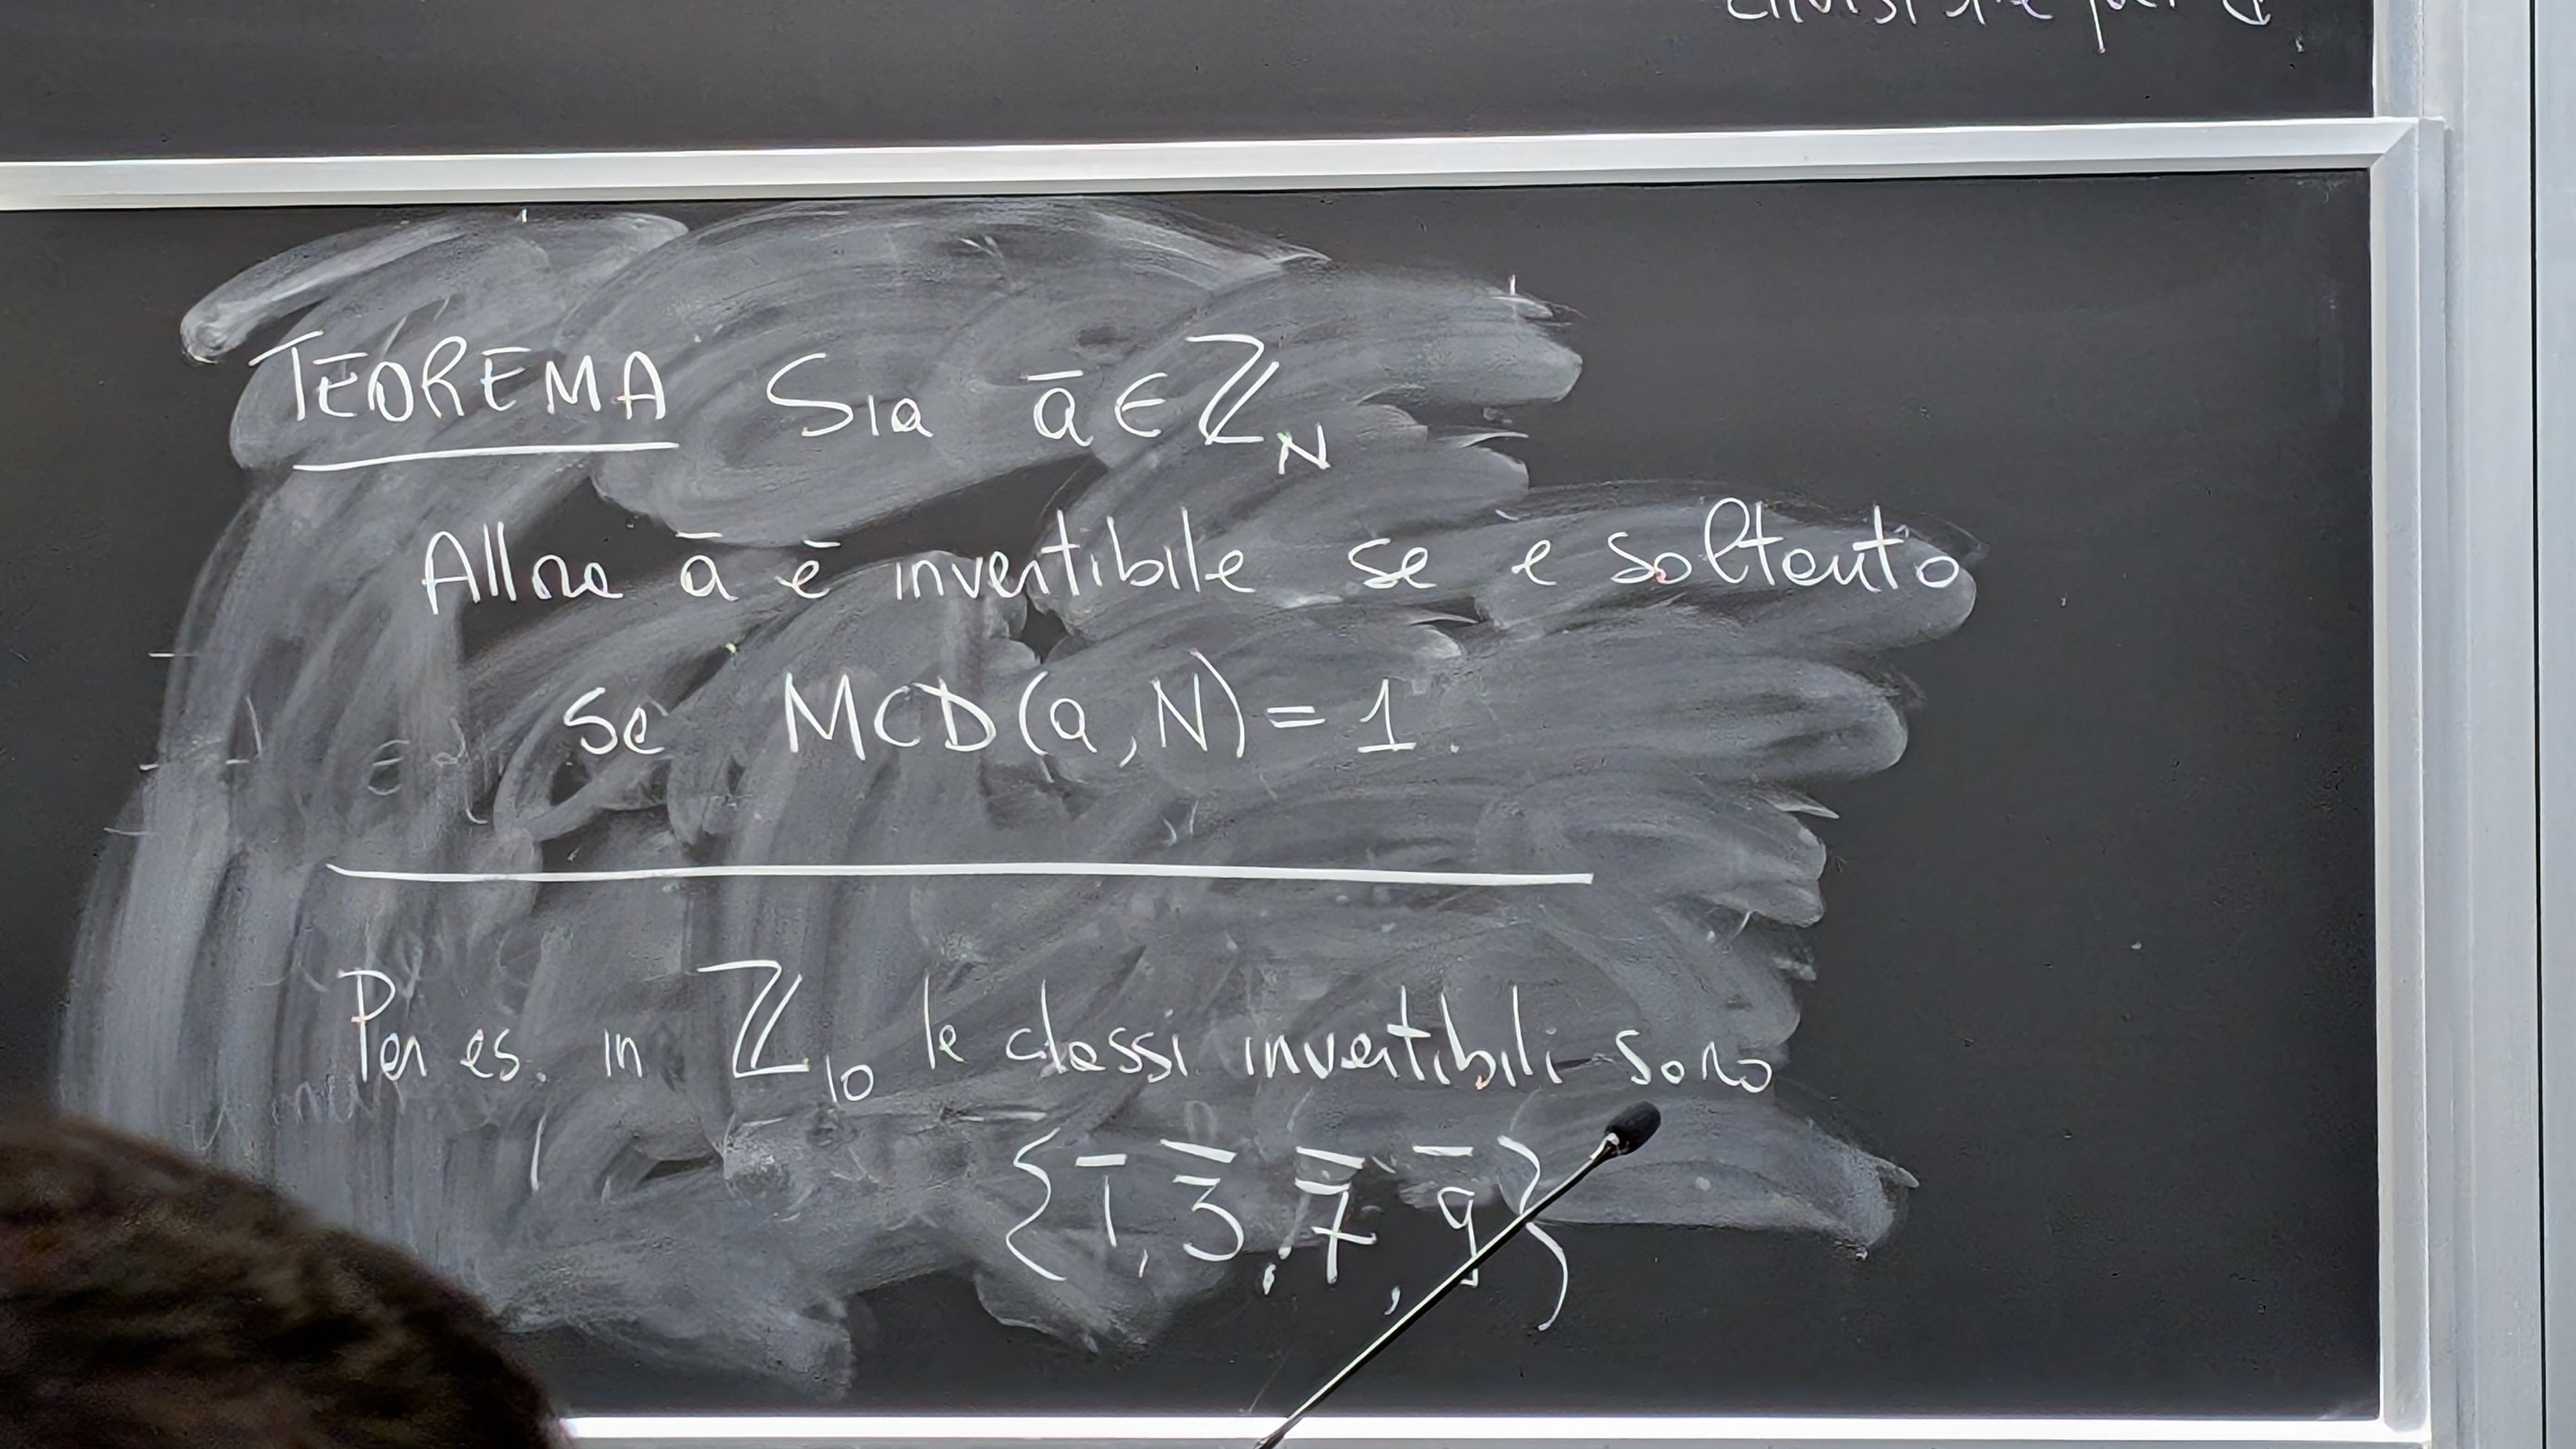 TEOREMA Sia ā ∈ ℤ_N
Allora ā è invertibile se e soltanto
se MCD(a, N) = 1.
Per es. in ℤ_10 le classi invertibili sono
{1̄, 3̄, 7̄, 9̄}